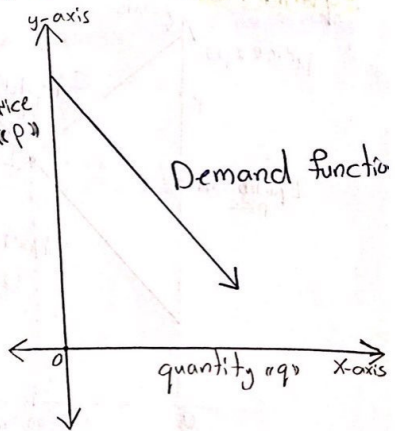 y-axis
rice
«p»
Demand functio
0
quantity «q» X-axis